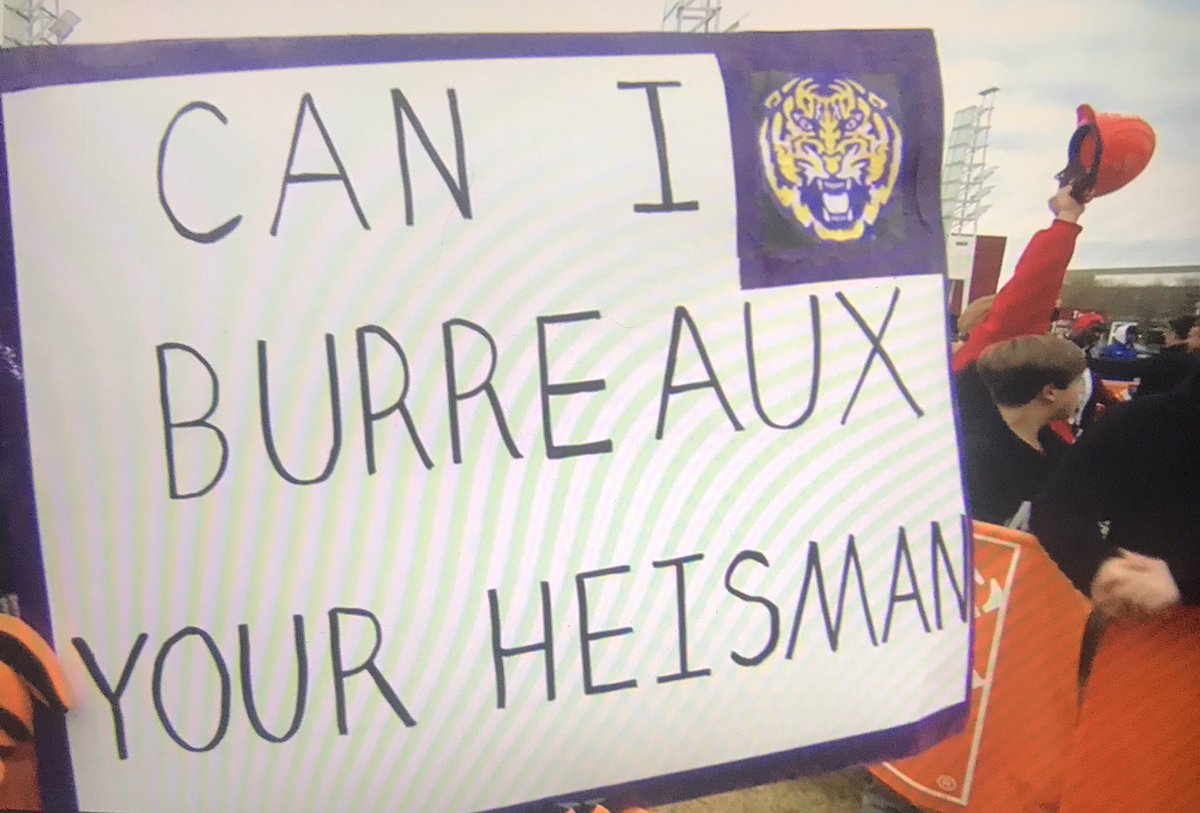 CAN I
BURREAUX
YOUR HEISMAN
®